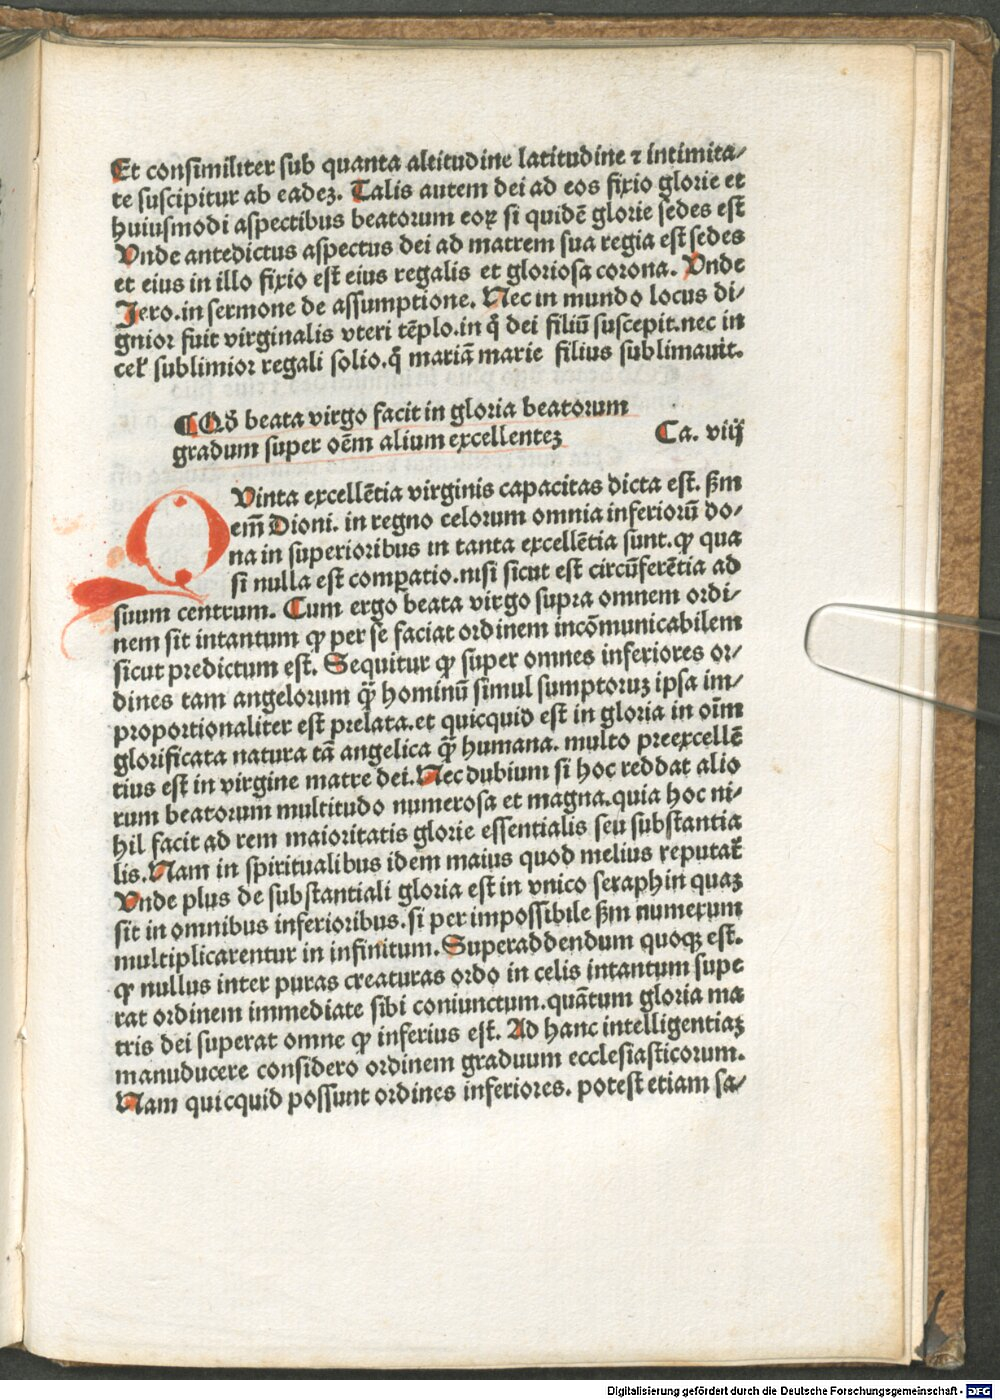 Et consimiliter sub quanta altitudine latitudine ⁊ intimita⸗
te suscipitur ab eadeꝫ. Talis autem dei ad eos fixio glorie et
huiusmodi aspectibus beatorum eoꝝ si quidē glorie sedes est
Vnde antedictus aspectus dei ad matrem sua regia est sedes
et eius in illo fixio est eius regalis et gloriosa corona. Vnde
Jero. in sermone de assumptione. Nec in mundo locus di⸗
gnior fuit virginalis vteri tēplo. in q̄ dei filiū suscepit. nec in
cel' sublimior regali solio. q̄ mariā marie filius sublimauit.
¶ Qd̓ beata virgo facit in gloria beatorum
gradum super oēm alium excellenteꝫ Ca. viij
QVinta excellētia virginis capacitas dicta est. ẞm
em̄ Dioni. in regno celorum omnia inferiorū do⸗
na in superioribus in tanta excellētia sunt. ꝙ qua
si nulla est comꝑatio. nisi sicut est circūferētia ad
suum centrum. Cum ergo beata virgo supra omnem ordi⸗
nem sit intantum ꝙ per se faciat ordinem incōmunicabilem
sicut predictum est. Sequitur ꝙ super omnes inferiores or⸗
dines tam angelorum ꝙ̄ hominū simul sumptoruꝫ ipsa im⸗
proportionaliter est prelata. et quicquid est in gloria in oīm
glorificata natura tā angelica ꝙ̄ humana. multo preexcellē
tius est in virgine matre dei. Nec dubium si hoc reddat alio
rum beatorum multitudo numerosa et magna. quia hoc ni⸗
hil facit ad rem maioritatis glorie essentialis seu substantia
lis. Nam in spiritualibus idem maius quod melius reputat᷑
Vnde plus de substantiali gloria est in vnico seraphin quaꝫ
sit in omnibus inferioribus. si per impossibile ẞm numerum
multiplicarentur in infinitum. Superaddendum quoqꝫ est.
ꝙ nullus inter puras creaturas ordo in celis intantum supe
rat ordinem immediate sibi coniunctum. quātum gloria ma
tris dei superat omne ꝙ inferius est. Ad hanc intelligentiaꝫ
manuducere considero ordinem graduum ecclesiasticorum.
Nam quicquid possunt ordines inferiores. potest etiam sa⸗
Digitalisierung gefördert durch die Deutsche Forschungsgemeinschaft - DFG